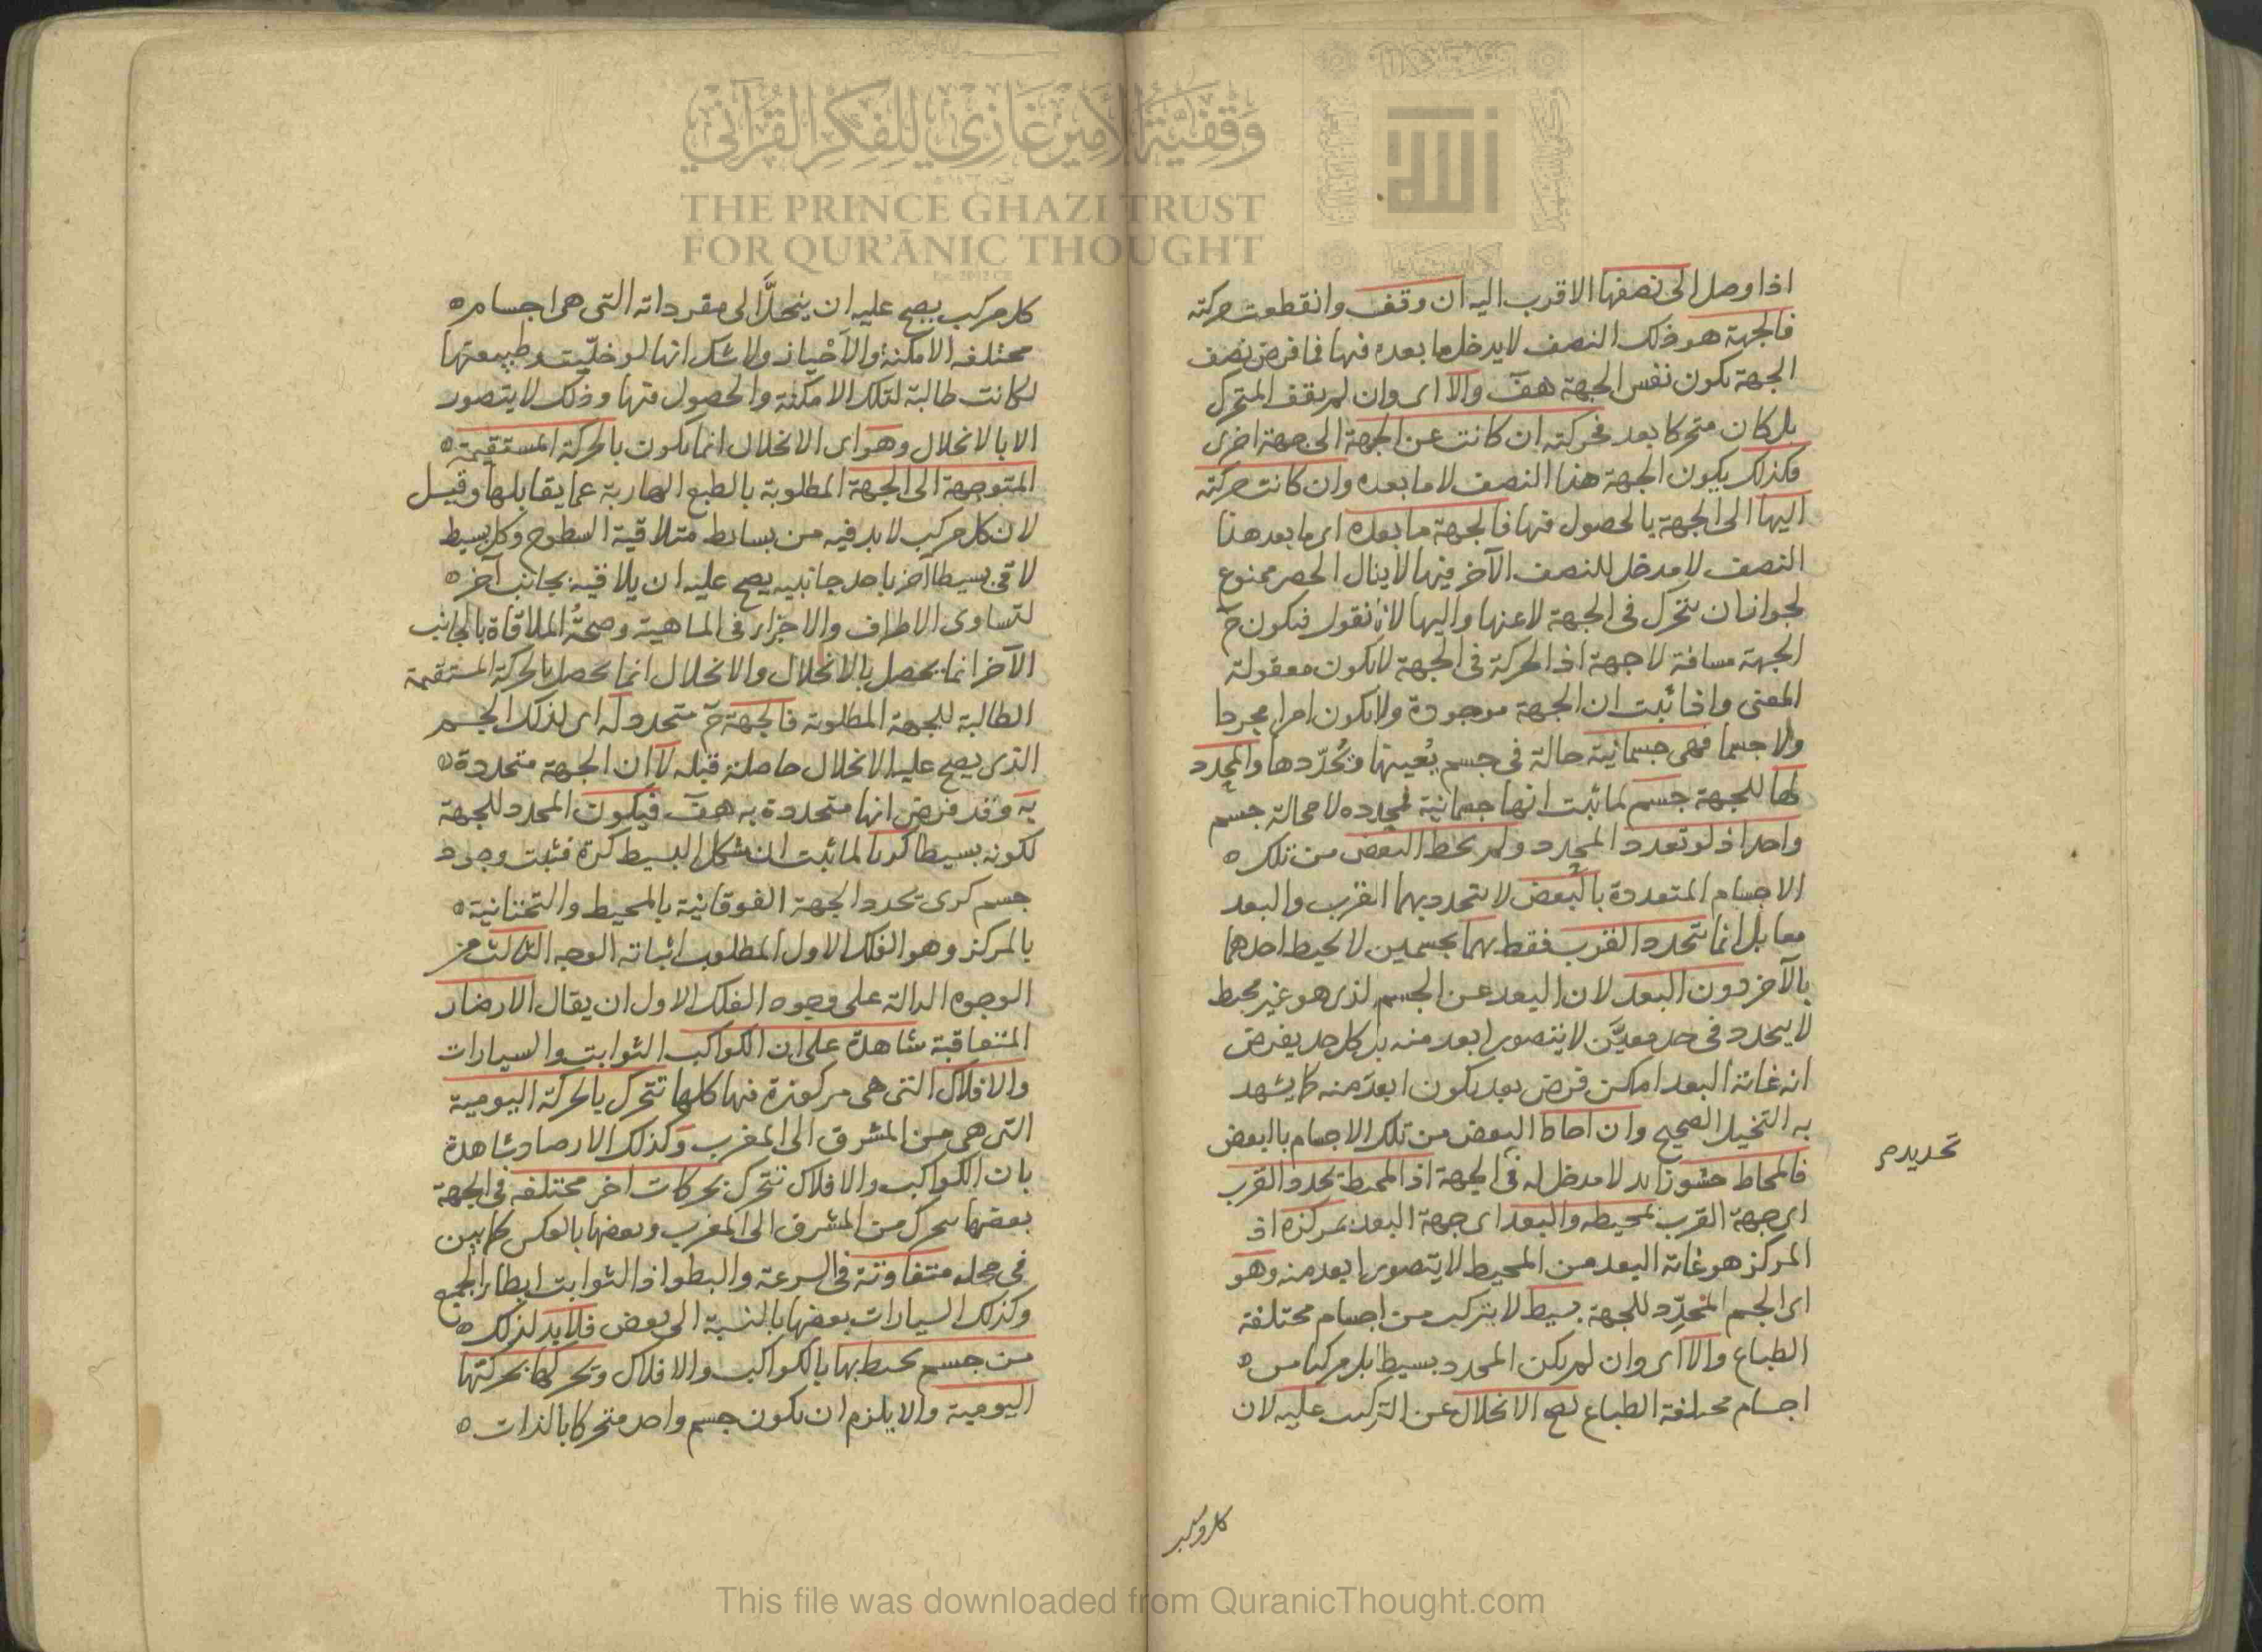 اذا وصل الى نصفها الاقرب اليه ان وقف وانقطعت حركته
فالجهة هو ذلك النصف لا يدخل ما بعده فيها فما فرض نصف
الجهة يكون نفس الجهة هف والا اى وان لم يقف المتحرك
بل كان متحركا بعد فحركته ان كانت عن الجهة الى جهة اخرى
فكذلك يكون الجهة هذا النصف لا ما بعده وان كانت حركته
اليها الى الجهة بالحصول فيها فالجهة ما بعده اى ما بعد هذا
النصف لا مدخل للنصف الآخر فيها لا يقال الحصر ممنوع
لجواز ان يتحرك فى الجهة لا عنها واليها لانا نقول فيكون ح
الجهة مسافة لا جهة اذ الحركة فى الجهة لا يكون معقولة
المعنى واذا ثبت ان الجهة موجودة ولا يكون امرا مجردا
ولا جسما فهى جسمانية حالة فى جسم يُعينها ويُحدّدها والمحدد
لها للجهة جسم لما ثبت انها جسمانية فمحدده لا محالة جسم
واحد اذ لو تعدد المحدد ولم يحط البعض من تلك ه
الاجسام المتعددة بالبعض لا يتحدد بهما القرب والبعد
معا بل انما يتحدد القرب فقط بهما بجسمين لا يحيط احدهما
بالآخر دون البعد لان البعد عن الجسم لذى هو غير محيط
لا يتحدد فى حد معيَّن لا يتصور ابعد منه بل كل حد يفرض
انه غاية البعد امكن فرض بعد يكون ابعد منه كما يشهد
به التخيل الصحيح وان احاط البعض من تلك الاجسام باابعض
فالمحاط حشو زايد لا مدخل له فى الجهة اذ المحيط يحدد القرب
تحديده م
اى جهة القرب بمحيطه والبعد اى جهة البعد بمركزه اذ
المركز هو غاية البعد من المحيط لا يتصور ابعد منه وهو
اى الجسم المحدِّد للجهة بسيط لا يتركب من اجسام مختلفة
الطباع والا اى وان لم يكن المحدد بسيطا بل مركبا من ه
اجسام مختلفة الطباع لصح الانحلال عن التركيب عليه لان
كل مركب
كل مركب يصح عليه ان ينحلَّ الى مفرداته التى هى اجسام ه
مختلفه الامكنة والاَحْياز ولا شك انها لو خلّيت وطبيعتها
لكانت طالبة لتلك الامكنة والحصول فيها وذلك لا يتصور
الا بالانحلال وهو اى الانحلال انما يكون بالحركة المستقيمة ه
المتوجهة الى الجهة المطلوبة بالطبع الهاربة عما يقابلها وقيل
لان كل مركب لا بد فيه من بسايط متلاقية السطوح وكل بسيط
لاقى بسيطا آخر باحد جانبيه يصح عليه ان يلاقيه بجانب آخر ه
لتساوى الاطراف والاجزاء فى الماهية وصحةُ الملاقاة بالجانب
الآخر انما يحصل بالانحلال والانحلال انما يحصل بالحركة المستقيمة
الطالبة للجهة المطلوبة فالجهة ح متحدد له اى لذلك الجسم
الذى يصح عليه الانحلال حاصلة قبله لا ان الجهة متحددة ه
به وقد فرض انها متحددة به هف فيكون المحدد للجهة
لكونه بسيطا كريا لما ثبت ان شكل البسيط كرة فثبت وجود
جسم كرى يحدد الجهة الفوقانية بالمحيط والتحتانية ه
بالمركز وهو الفلك الاول المطلوب اثباته الوجه الثالث من
الوجوه الدالة على وجود الفلك الاول ان يقال الارصاد
المتعاقبة شاهدة على ان الكواكب الثوابت والسيارات
والافلاك التى هى مركوزة فيها كلها تتحرك بالحركة اليومية
التى هى من المشرق الى المغرب وكذلك الارصاد شاهدة
بان الكواكب والافلاك تتحرك بحركات اخر مختلفه فى الجهة
بعضها يتحرك من المشرق الى المغرب وبعضها بالعكس كما بين
فى محله متفاوتة فى السرعة والبطو اذ الثوابت ابطاء الجميع
وكذلك السيارات بعضها بالنسبة الى بعض فلا بد لذلك ه
من جسم يحيط بها بالكواكب والافلاك وتحركها بحركتها
اليومية والا يلزم ان يكون جسم واحد متحركا بالذات ه
وقفية الأمير غازي للفكر القرآني
THE PRINCE GHAZI TRUST
FOR QUR'ĀNIC THOUGHT
الله
This file was downloaded from QuranicThought.com